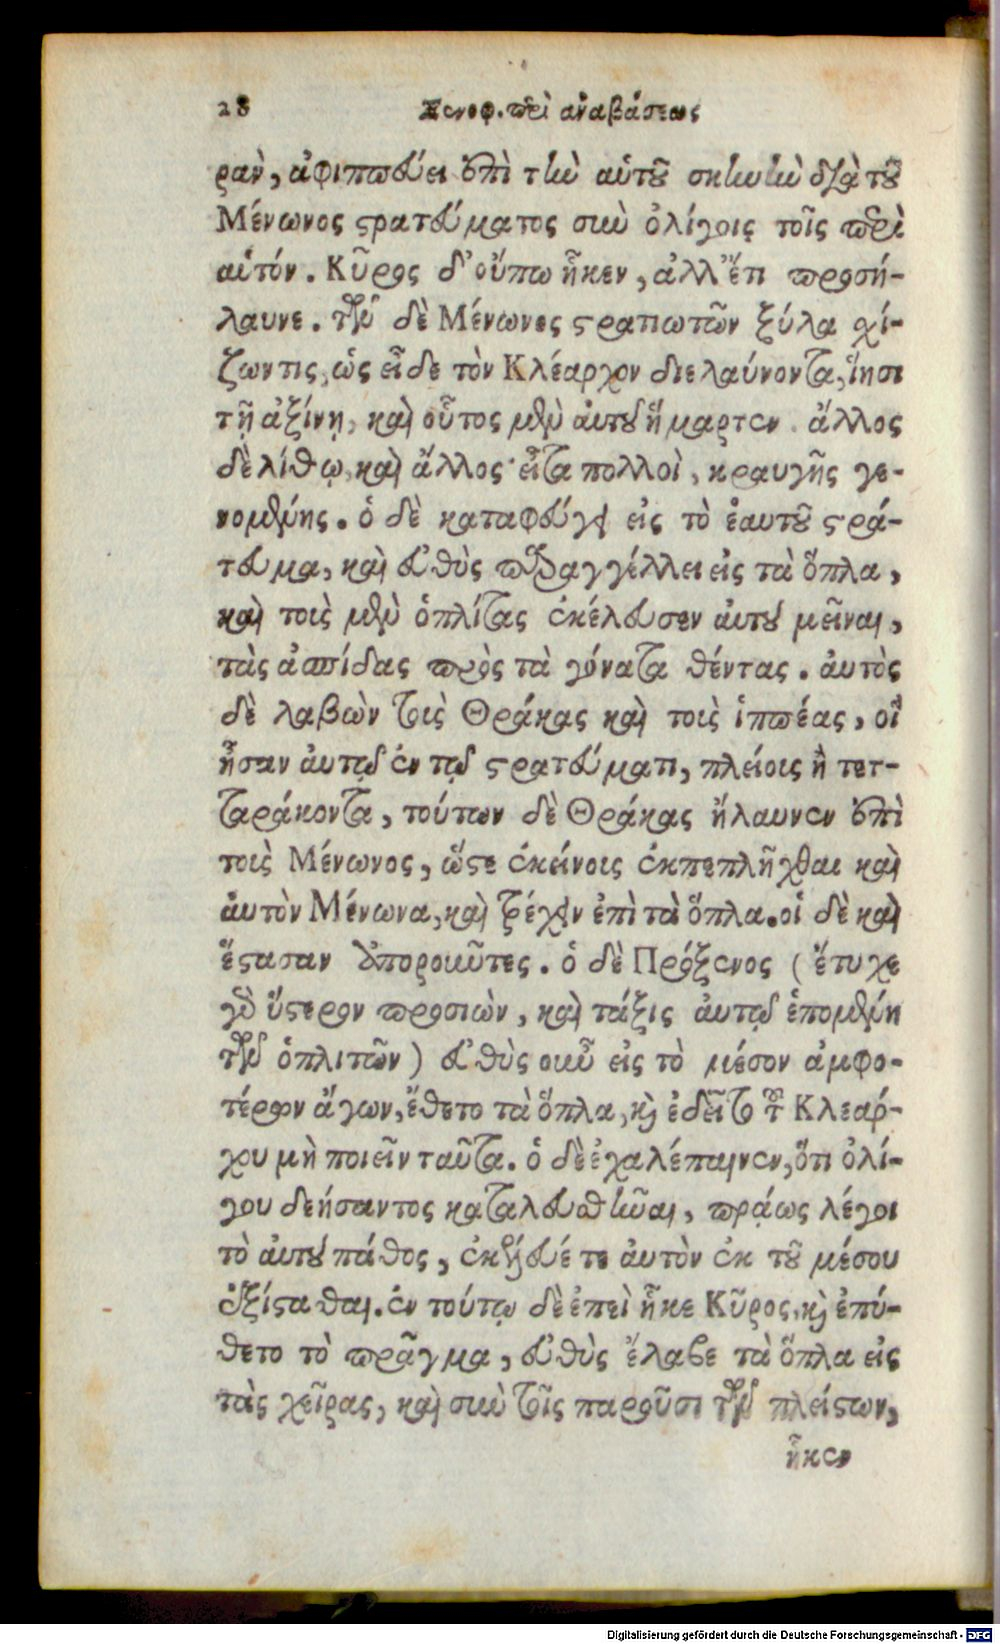 28 Ξενοφ. περὶ ἀναβάσεως
ραν, ἀφιππεύει ἐπὶ τὴν αὑτοῦ σκηνὴν διὰ τοῦ
Μένωνος στρατεύματος σὺν ὀλίγοις τοῖς περὶ
αὐτόν. Κῦρος δ' οὔπω ἧκεν, ἀλλ' ἔτι προσή-
λαυνε. τῶν δὲ Μένωνος στρατιωτῶν ξύλα σχί-
ζων τις, ὡς εἶδε τὸν Κλέαρχον διελαύνοντα, ἵησι
τῇ ἀξίνῃ, καὶ οὗτος μὲν αὐτοῦ ἥμαρτεν. ἄλλος
δὲ λίθῳ, καὶ ἄλλος· εἶτα πολλοὶ, κραυγῆς γε-
νομένης. ὁ δὲ καταφεύγει εἰς τὸ ἑαυτοῦ στρά-
τευμα, καὶ εὐθὺς παραγγέλλει εἰς τὰ ὅπλα,
καὶ τοὺς μὲν ὁπλίτας ἐκέλευσεν αὐτοῦ μεῖναι,
τὰς ἀσπίδας πρὸς τὰ γόνατα θέντας. αὐτὸς
δὲ λαβὼν τοὺς Θρᾴκας καὶ τοὺς ἱππέας, οἳ
ἦσαν αὐτῷ ἐν τῷ στρατεύματι, πλείους ἢ τετ-
ταράκοντα, τούτων δὲ Θρᾴκας ἤλαυνεν ἐπὶ
τοὺς Μένωνος, ὥστε ἐκείνοις ἐκπεπλῆχθαι καὶ
αὐτὸν Μένωνα, καὶ τρέχειν ἐπὶ τὰ ὅπλα. οἱ δὲ καὶ
ἕστασαν ἀποροῦντες. ὁ δὲ Πρόξενος (ἔτυχε
γὰρ ὕστερον προσιὼν, καὶ τάξις αὐτῷ ἑπομένη
τῶν ὁπλιτῶν) εὐθὺς οὖν εἰς τὸ μέσον ἀμφο-
τέρων ἄγων, ἔθετο τὰ ὅπλα, καὶ ἐδεῖτο τοῦ Κλεάρ-
χου μὴ ποιεῖν ταῦτα. ὁ δὲ ἐχαλέπαινεν, ὅτι ὀλί-
γου δεήσαντος καταλευσθῆναι, πρᾴως λέγοι
τὸ αὐτοῦ πάθος, ἐκέλευέ τε αὐτὸν ἐκ τοῦ μέσου
ἐξίστασθαι. ἐν τούτῳ δὲ ἐπεὶ ἧκε Κῦρος, καὶ ἐπύ-
θετο τὸ πρᾶγμα, εὐθὺς ἔλαβε τὰ ὅπλα εἰς
τὰς χεῖρας, καὶ σὺν τοῖς παροῦσι τῶν πλείστων,
ἧκεν
Digitalisierung gefördert durch die Deutsche Forschungsgemeinschaft - DFG